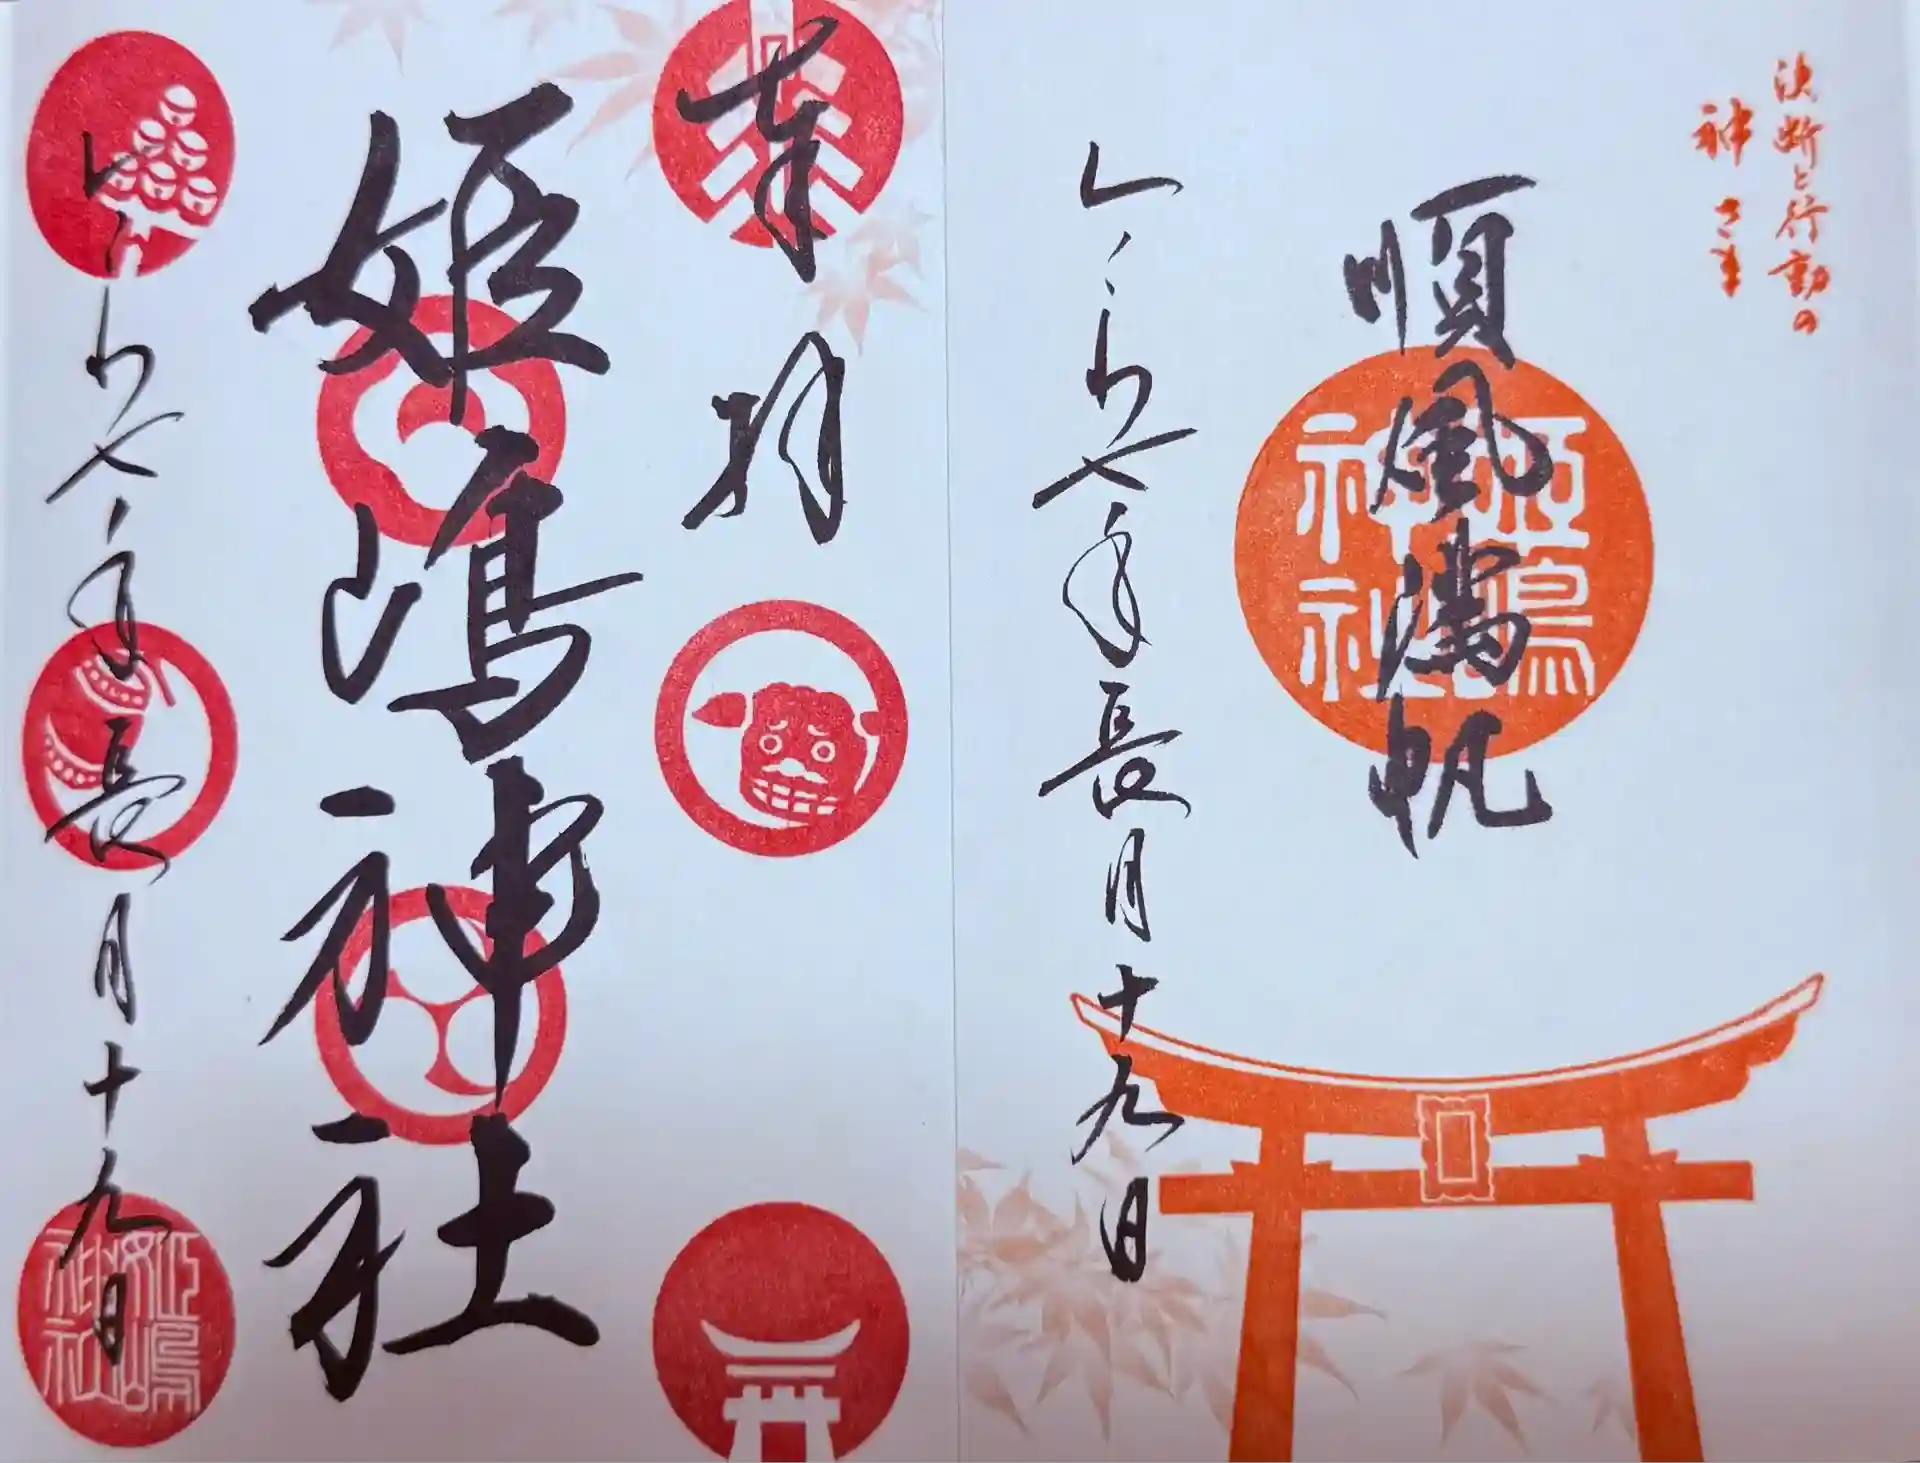 決断と行動の
神さま
順風満帆
姫嶋
神社
令和七年長月十九日
奉拝
姫嶋神社
令和七年長月十九日
姫嶋
神社